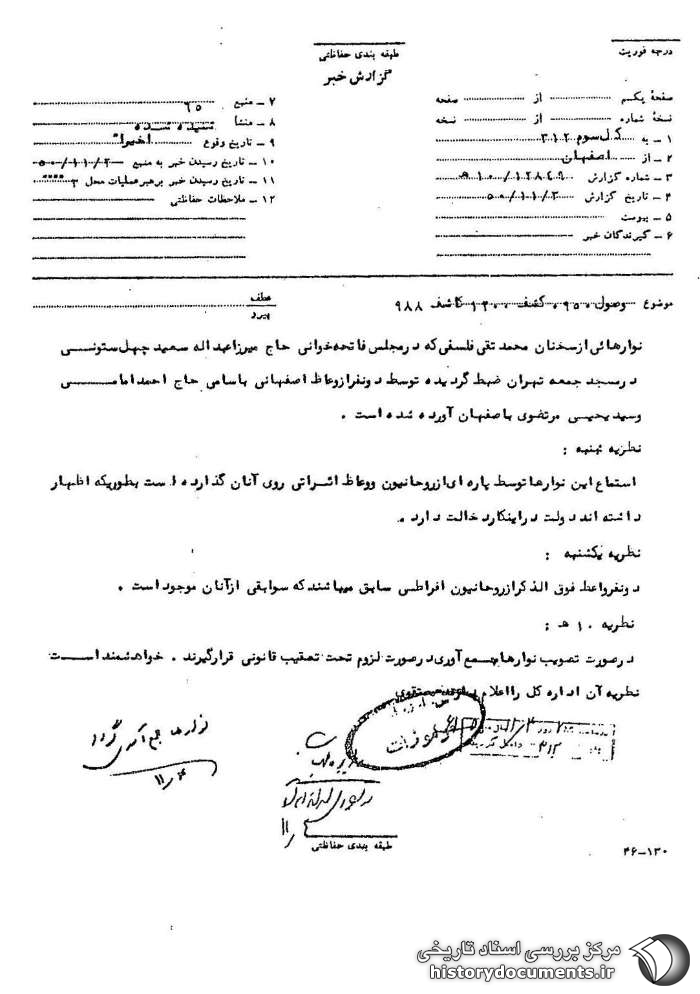 درجه فوریت
طبقه بندی حفاظتی
گزارش خبر
صفحهٔ یکم از صفحه
نسخهٔ شماره از نسخه
۱ ـ به کل سوم ۳۱۲
۲ ـ از اصفهان
۳ ـ شماره گزارش ۱۲۸۴۹/۱۰ه
۴ ـ تاریخ گزارش ۵۰/۱۱/۲
۵ ـ پیوست
۶ ـ گیرندگان خبر
۷ ـ منبع ۶۵
۸ ـ منشا شنیده شده
۹ ـ تاریخ وقوع اخیرا
۱۰ ـ تاریخ رسیدن خبر به منبع ۵۰/۱۱/۲
۱۱ ـ تاریخ رسیدن خبر برهبر عملیات محل ۳
۱۲ ـ ملاحظات حفاظتی
موضوع وصول ۹۵۰ کشف ۱۲۰۰ کاشف ۹۸۸
عطف
پیرو
نوارهائی از سخنان محمد تقی فلسفی که در مجلس فاتحه خوانی حاج میرزا عبداله سعید چهل ستونی
در مسجد جمعه تهران ضبط گردیده توسط دو نفر از وعاظ اصفهانی باسامی حاج احمد امامی
و سید یحیی مرتضوی باصفهان آورده شده است .
نظریه شنبه :
استماع این نوارها توسط پاره ای از روحانیون و وعاظ اثراتی روی آنان گذارده است بطوریکه اظهار
داشته اند دولت در اینکار دخالت دارد .
نظریه یکشنبه :
دو نفر واعظ فوق الذکر از روحانیون افراطی سابق میباشند که سوابقی از آنان موجود است .
نظریه ۱۰ هـ :
در صورت تصویب نوارها جمع آوری در صورت لزوم تحت تعقیب قانونی قرار گیرند . خواهشمند است
نظریه آن اداره کل را اعلام
نوارها جمع آوری گردد
۱۱/۴
طبقه بندی حفاظتی
۴۶-۱۳۰
مرکز بررسی اسناد تاریخی
historydocuments.ir